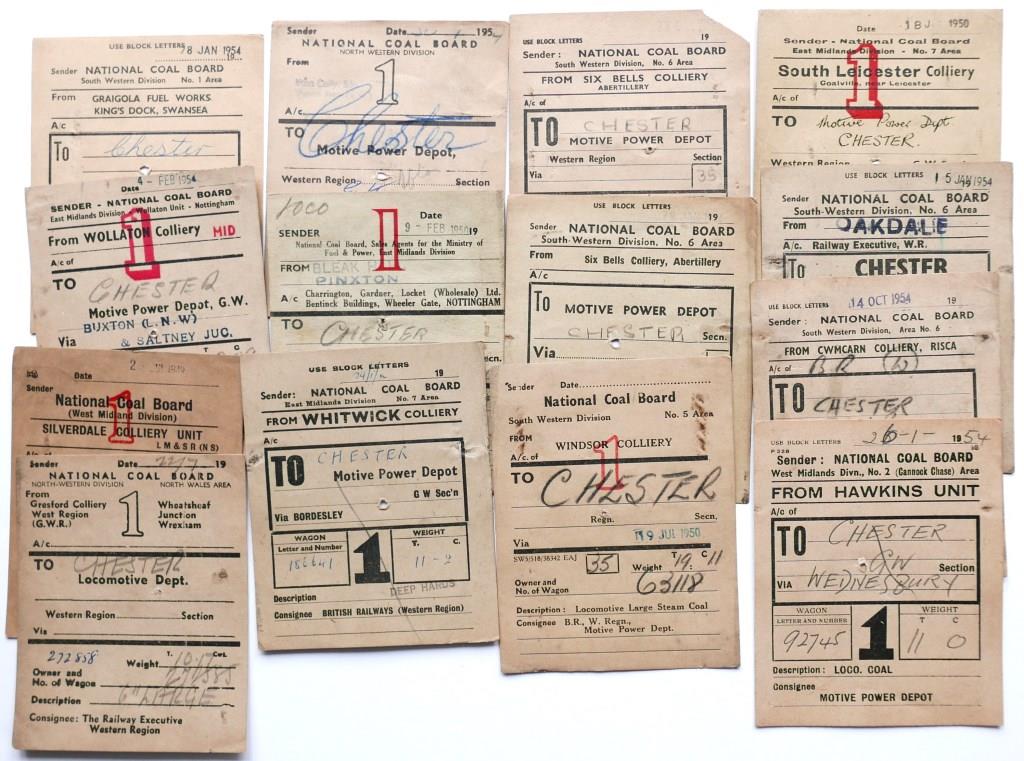 USE BLOCK LETTERS
8 JAN 1954
19
Sender NATIONAL COAL BOARD
South Western Division No. 1 Area
From GRAIGOLA FUEL WORKS
KING'S DOCK, SWANSEA
A/c
To Chester
Sender Date 195
NATIONAL COAL BOARD
NORTH WESTERN DIVISION
From
1
A/c
TO Chester
Motive Power Depot,
Western Region Section
USE BLOCK LETTERS 19
Sender: NATIONAL COAL BOARD
South Western Division, No. 6 Area
FROM SIX BELLS COLLIERY
ABERTILLERY
A/c of
TO CHESTER
MOTIVE POWER DEPOT
Western Region Section
Via 35
Date 1950
Sender - National Coal Board
East Midlands Division - No. 7 Area
South Leicester Colliery
Coalville, near Leicester
1
A/c of
TO Motive Power Dept
CHESTER.
Western Region
Date 4 - FEB 1954
SENDER - NATIONAL COAL BOARD
East Midlands Division - Wollaton Unit - Nottingham
From WOLLATON Colliery MID
1
A/c of
TO CHESTER
Motive Power Depot, G.W.
BUXTON (L.N.W)
Via & SALTNEY JUC.
LOCO
Date
9 - FEB 1950 19
SENDER
1
National Coal Board, Sales Agents for the Ministry of
Fuel & Power, East Midlands Division
FROM
PINXTON
A/c Charrington, Gardner, Locket (Wholesale) Ltd.
Bentinck Buildings, Wheeler Gate, NOTTINGHAM
TO CHESTER
USE BLOCK LETTERS
Sender NATIONAL COAL BOARD
South-Western Division, No. 6 Area
From Six Bells Colliery, Abertillery
A/c
To MOTIVE POWER DEPOT
CHESTER Secn.
Via
USE BLOCK LETTERS 15 JAN 1954
Sender NATIONAL COAL BOARD
South-Western Division, No. 6 Area
From OAKDALE
A/c. Railway Executive, W.R.
To CHESTER
USE BLOCK LETTERS 14 OCT 1954 19
Sender: NATIONAL COAL BOARD
South Western Division, Area No. 6
FROM CWMCARN COLLIERY, RISCA
A/c of B.R (W)
TO CHESTER
Date
Sender
National Coal Board
(West Midland Division)
SILVERDALE COLLIERY UNIT
L M & S R (N S)
1
Sender Date 22/7 19
NATIONAL COAL BOARD
NORTH-WESTERN DIVISION NORTH WALES AREA
From
Gresford Colliery
West Region
(G.W.R.)
1
Wheatsheaf
Junction
Wrexham
A/c
TO CHESTER
Locomotive Dept.
Western Region Section
Via
272858
T. Cwt.
Weight
Owner and
No. of Wagon
Description 6" LARGE
Consignee: The Railway Executive
Western Region
USE BLOCK LETTERS
19
Sender: NATIONAL COAL BOARD
East Midlands Division No. 7 Area
FROM WHITWICK COLLIERY
A/c
TO CHESTER
Motive Power Depot
G W Sec'n
Via BORDESLEY
WAGON
Letter and Number
186641
1
WEIGHT
T. C.
11 - 2
DEEP HARDS
Description
Consignee BRITISH RAILWAYS (Western Region)
Sender Date
National Coal Board
South Western Division No. 5 Area
FROM
WINDSOR COLLIERY
1
TO CHESTER
Regn. Secn.
Via 19 JUL 1950
SW5/518/38342 EAJ 35 Weight T. 19 C. 11
Owner and
No. of Wagon 63118
Description: Locomotive Large Steam Coal
Consignee B.R., W. Regn.,
Motive Power Dept.
USE BLOCK LETTERS 26-1- 1954
P 328
Sender: NATIONAL COAL BOARD
West Midlands Divn., No. 2 (Cannock Chase) Area
FROM HAWKINS UNIT
A/c of
TO CHESTER
GW Section
VIA WEDNESBURY
WAGON
LETTER AND NUMBER
92745
1
WEIGHT
T C
11 0
Description: LOCO. COAL
Consignee
MOTIVE POWER DEPOT